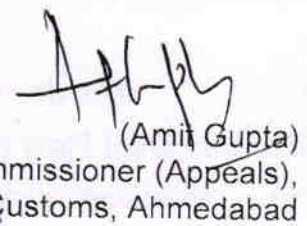 (Amit Gupta)
mmissioner (Appeals),
Customs, Ahmedabad